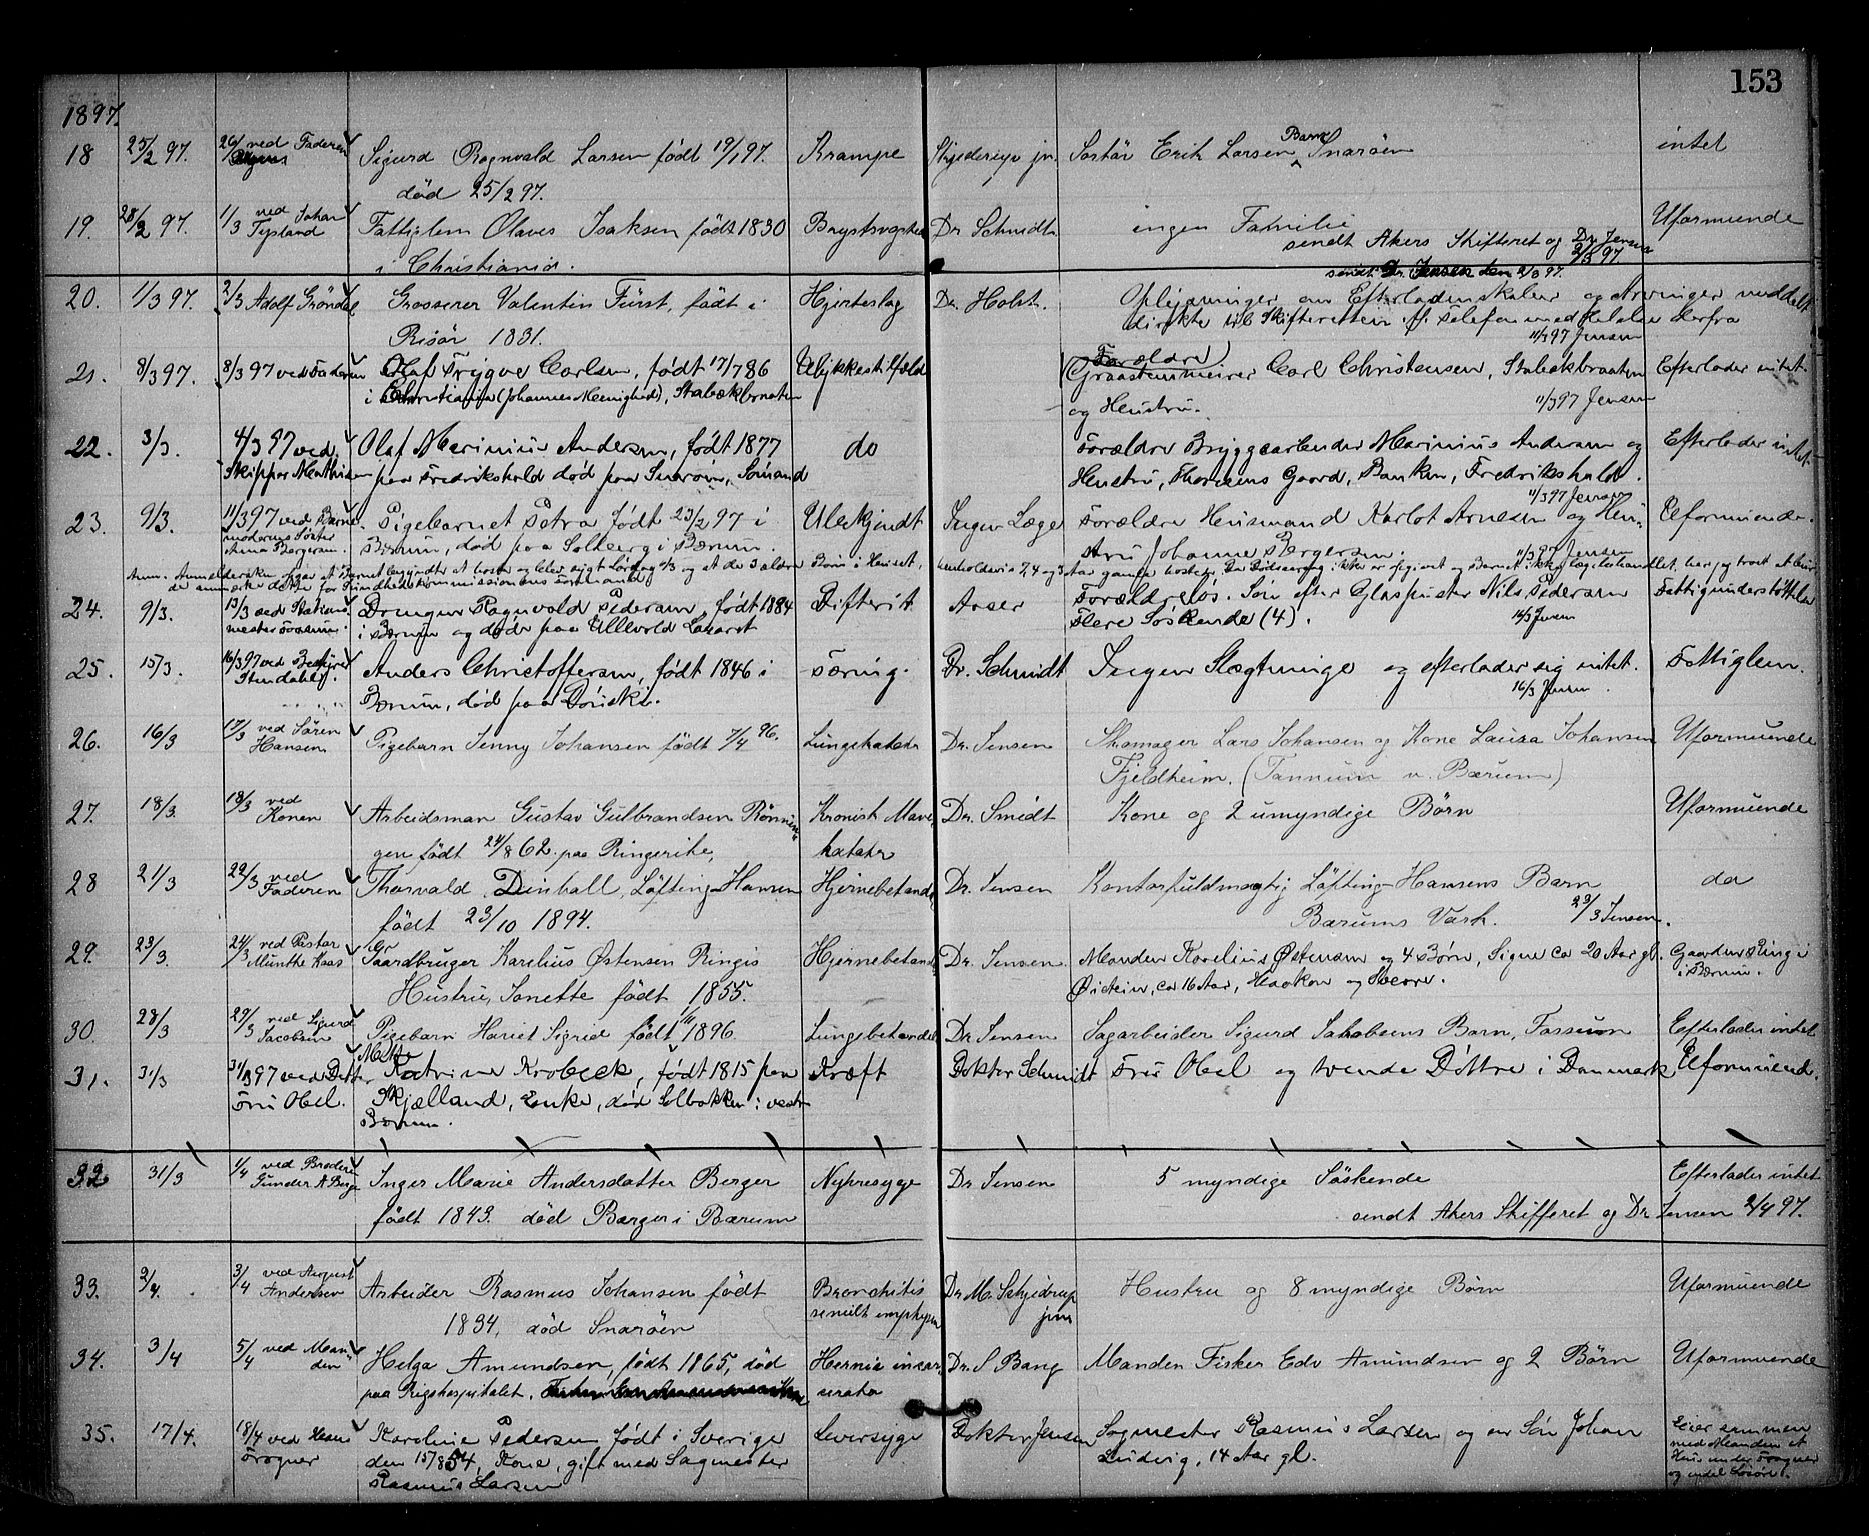 153
1897.
18 25/2 97. 26/2 ved Faderen Sigurd Ragnvald Larsen født 19/1 97. Krampe Skjederup jr. Erik Larsen Barn Snarøen intet
død 25/2 97.
19. 28/2 97. 1/3 ved Johan Tysland Fattiglem Olaves Isaksen født 1830 Dr Schmidt ingen Familie Uformuende
i Christiania. sendt Akers Skifteret og Dr Jensen 2/3 97.
sendt Dr. Jensen den 2/3 97.
20. 1/3 97. 2/3 Adolf Grøndal Grosserer Valentin Fürst, født i Hjerteslag Dr. Holst. Oplysninger om Efterladenskaber og Arvinger meddelt
Risør 1831. direkte til Skifteretten if. Telefonmeddelelse derfra
11/3 97 Jensen
21. 8/3 97. 8/3 97 ved Faderen Olaf Trygve Carlsen, født 17/7 86 Ulykkestilfæld Forældre Graastensmurer Carl Christensen, Stabekbraaten Efterlader intet.
i Christiania (Johannes Menighed), Stabækbraaten og Hustru. 11/3 97 Jensen
22. 3/3. 4/3 97 ved Olaf Marinius Andersen, født 1877 do Forældre Bryggearbeider Marinius Andersen og Efterlader intet
Skipper Mathisen paa Fredrikshald død paa Snarøen, Sømand Hustru, Gaard, Banken, Fredrikshald.
11/3 97 Jensen
23. 9/3. 11/3 97 ved Barnemoderens Søster Anna Bergersen. Pigebarnet Petra født 23/2 97 i Ubekjendt Ingen Læge Forældre Husmand Karlot Arnesen og Hustru Uformuende.
Bærum, død paa Solberg i Bærum. Johanne Bergersen. 11/3 97 Jensen
24. 9/3. 13/3 ved Stationsmester Drengen Ragnvald Pedersen, født 1884 Difterit Aaser Forældreløs. Søn efter Glaspuster Nils Pedersen Fattigunderstøttelse
i Bærum og døde paa Ullevold Lazaret Flere Søskende (4). 16/3 Jensen
25. 15/3. 16/3 97 ved Bestyrer Anders Christoffersen, født 1846 i Tæring. Dr. Schmidt Ingen Slægtninge og efterlader sig intet. Fattiglem.
Bærum, død paa Dønski. 16/3 Jensen
26. 16/3 17/3 ved Søren Hansen Pigebarn Jenny Johansen født 7/4 96. Lungekatarr Dr. Jensen Skomager Lars Johansen og Kone Laura Johansen Uformuende
Fjeldheim. (Tannum v. Bærum)
27. 18/3. 18/3 ved Konen Arbeidsman Gustav Gulbrandsen Rønningen Kronisk Mave- Dr. Smidt Kone og 2 umyndige Børn Uformuende
født 24/8 62. paa Ringerike, katarr
28 21/3 22/3 ved Faderen Thorvald Dinhall, Løfting-Hansen Hjernebetænd. Dr. Jensen Kontorfuldmægtig Løfting-Hansens Barn do
født 23/10 1894. Bærums Værk. 23/3 Jensen.
29. 23/3. 24/3 ved Pastor Munthe Kaas Gaardbruger Karelius Østensen Ringis Hjernebetænd. Dr. Jensen Manden Karelius Østensen og 4 Børn, Signe ca 20 Aar gl. Gaarden Ring i
Hustru, Janette født 1855. Øistein, ca 16 Aar, Haakon og Haavor. i Bærum.
30. 28/3 29/3 ved Sigurd Jacobsen Pigebarn Hariet Sigrid født 1896. Lungebetændel. Dr. Jensen Sagarbeider Sigurd Jakobsens Barn, Fossum Efterlader intet
31. 31/3 31/3 97 ved Datter Fru Obel. Katrine Krobeck, født 1815 paa Kræft Doktor Schmidt Fru Obel og tvende Døttre i Danmark Uformuend.
Skjælland, Enke, død Solbakken i vestre
Bærum.
32 31/3 1/4 ved Broderen Gunder A Berger Inger Marie Andersdatter Berger Nyresyge Dr Jensen 5 myndige Søskende Efterlader intet
født 1843. død Berger i Bærum sendt Akers Skifteret og Dr. Jensen 2/4 97.
33. 2/4. 3/4 ved August Andersen Arbeider Rasmus Johansen født Bronchitis Dr. M. Skjedrup Hustru og 8 myndige Børn Uformuende
1834, død Snarøen senilt emphysem jun
34. 3/4 5/4 ved Manden Helga Amundsen, født 1865, død Hernia incar- Dr. S Bang Manden Fisker Edv Amundsen og 2 Børn Uformuende
paa Rigshospitalet. serata
35. 17/4. 18/4 ved Hans Fragner Karoline Pedersen født i Sverige Leversyge Doktor Jensen Sagmester Rasmus Larsen og en Søn Johan Eier sammen
den 15/8 54, Kone, gift med Sagmester Ludvig, 14 Aar gl. med Manden et
Rasmus Larsen Hus under Fragner
og endel Løsøre.